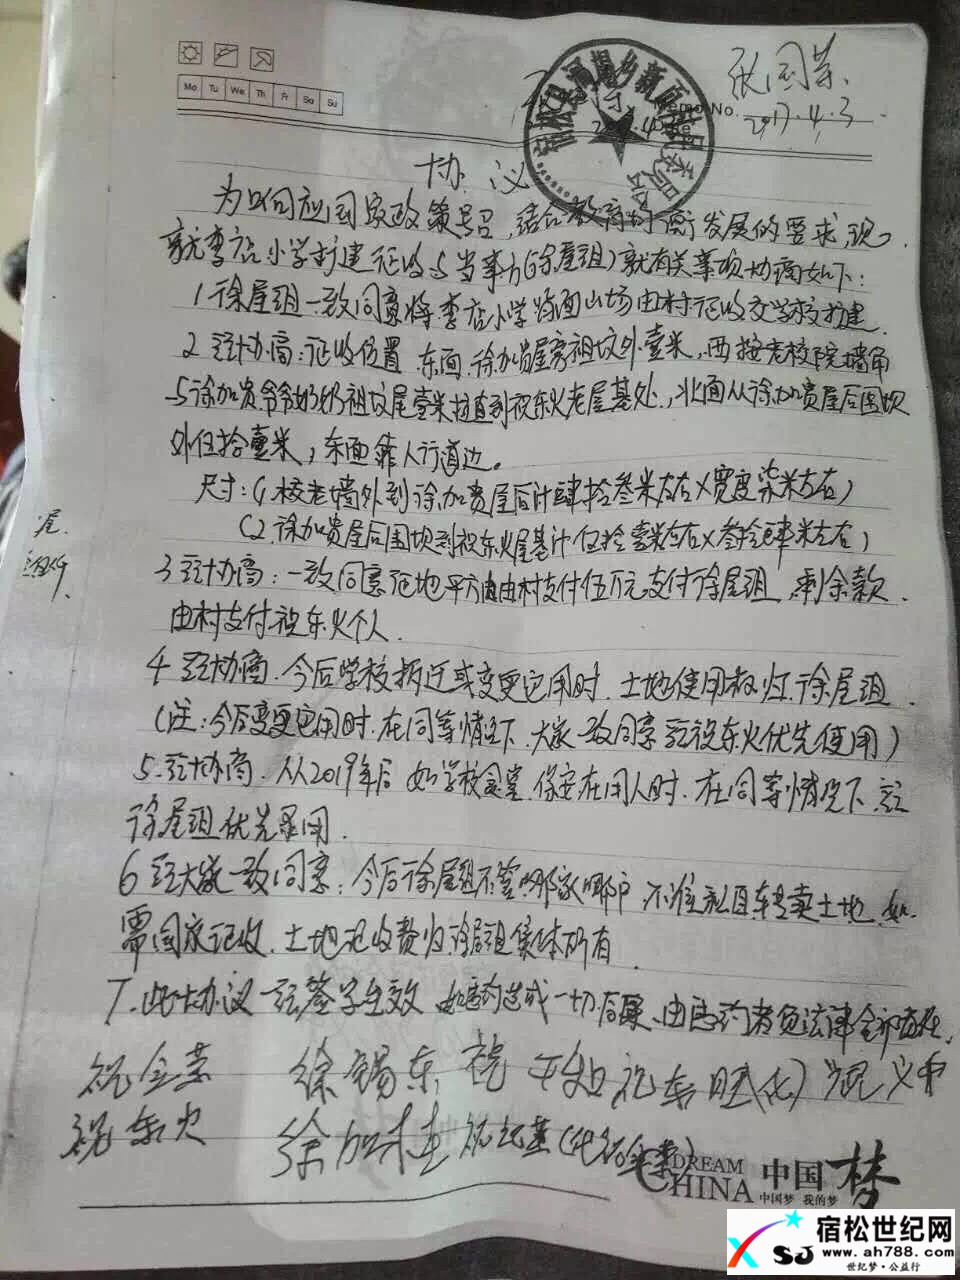 Mo Tu We Th Fr Sa Su
Memo No.
张国荣
2017.4.3
协议
为响应国家政策号召，结合教育均衡发展的要求，现
就李店小学扩建征收与当事方(徐屋组)就有关事项协商如下：
1 徐屋组一致同意将李店小学路面山场由村征收交学校扩建
2 经协商：征收位置 东面 徐加贵屋旁祖坟外壹米，西 按老校院墙角
与徐加贵爷爷奶奶祖坟尾壹米拉直到祝东火老屋基处，北面从徐加贵屋后围坝
外伍拾壹米，东面靠人行道边。
尺寸：(1 校老墙外到徐加贵屋后计肆拾叁米左右X宽度柒米左右)
(2.徐加贵屋后围坝到祝东火屋基计伍拾壹米左右X叁拾肆米左右)
3 经协商：一致同意征地平方由村支付伍万元支付徐屋组，剩余款
由村支付祝东火个人.
4 经协商.今后学校拆迁或变更它用时.土地使用权归徐屋组.
(注：今后变更它用时.在同等情况下.大家一致同意 经祝东火优先使用)
5.经协商.从2019年后 如学校食堂.保安在用人时.在同等情况下.经
徐屋组优先录用.
6 经大家一致同意：今后徐屋组不管哪家哪户 不准私自转卖土地.如
需国家征收.土地征收费归徐屋组集体所有.
7.此协议一经签字生效.如违约造成一切后果、由违约者负法律全部责任.
祝金荣 徐锡东 祝
祝东火 徐加 祝
DREAM
CHINA 中国梦
中国梦 我的梦
宿松世纪网
www.ah788.com
世纪梦·公益行
XSJ